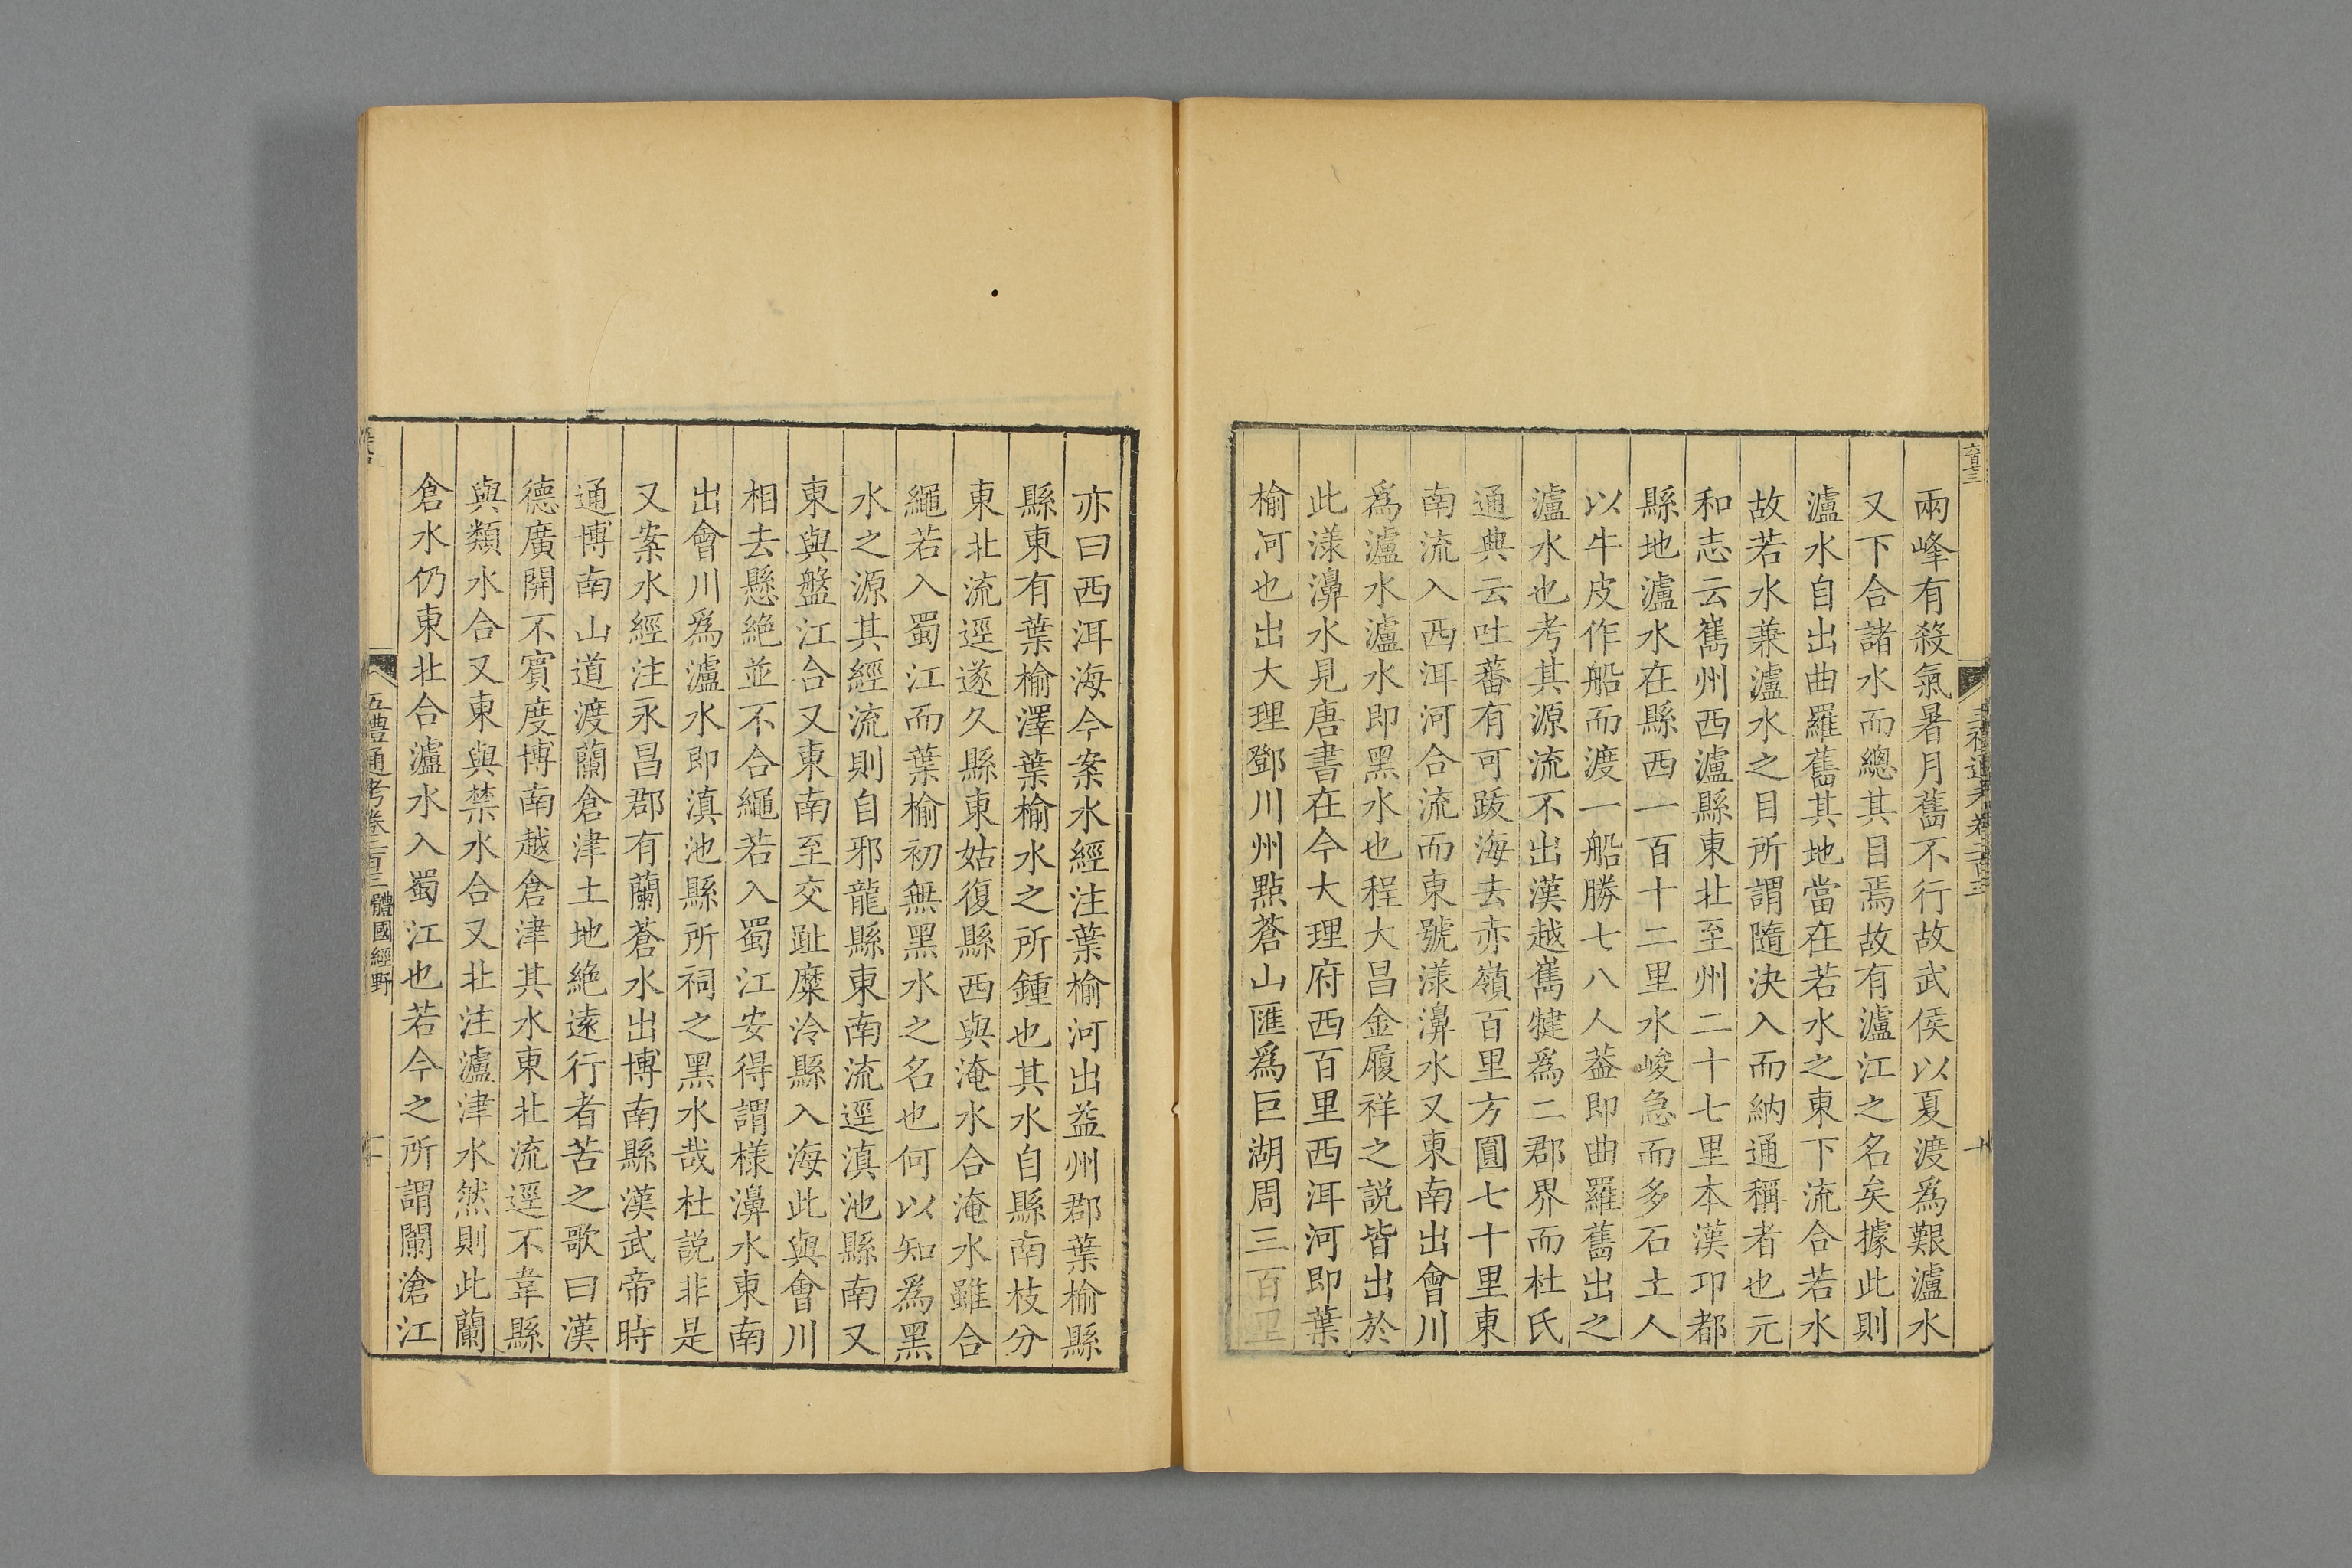 六百七三
五禮通考卷二百三
十
兩峰有殺氣暑月舊不行故武侯以夏渡爲艱瀘水
又下合諸水而總其目焉故有瀘江之名矣據此則
瀘水自出曲羅舊其地當在若水之東下流合若水
故若水兼瀘水之目所謂隨決入而納通稱者也元
和志云嶲州西瀘縣東北至州二十七里本漢邛都
縣地瀘水在縣西一百十二里水峻急而多石土人
以牛皮作船而渡一船勝七八人葢即曲羅舊出之
瀘水也考其源流不出漢越嶲犍爲二郡界而杜氏
通典云吐蕃有可跋海去赤嶺百里方圓七十里東
南流入西洱河合流而東號漾濞水又東南出會川
爲瀘水瀘水即黑水也程大昌金履祥之說皆出於
此漾濞水見唐書在今大理府西百里西洱河即葉
榆河也出大理鄧川州點蒼山匯爲巨湖周三百里
亦曰西洱海今案水經注葉榆河出益州郡葉榆縣
縣東有葉榆澤葉榆水之所鍾也其水自縣南枝分
東北流逕遂久縣東姑復縣西與淹水合淹水雖合
繩若入蜀江而葉榆初無黑水之名也何以知爲黑
水之源其經流則自邪龍縣東南流逕滇池縣南又
東與盤江合又東南至交趾糜泠縣入海此與會川
相去懸絕並不合繩若入蜀江安得謂樣濞水東南
出會川爲瀘水即滇池縣所祠之黑水哉杜說非是
又案水經注永昌郡有蘭蒼水出博南縣漢武帝時
通博南山道渡蘭倉津土地絕遠行者苦之歌曰漢
德廣開不賓度博南越倉津其水東北流逕不韋縣
與類水合又東與禁水合又北注瀘津水然則此蘭
倉水仍東北合瀘水入蜀江也若今之所謂闌滄江
五禮通考卷二百三 體國經野
十一